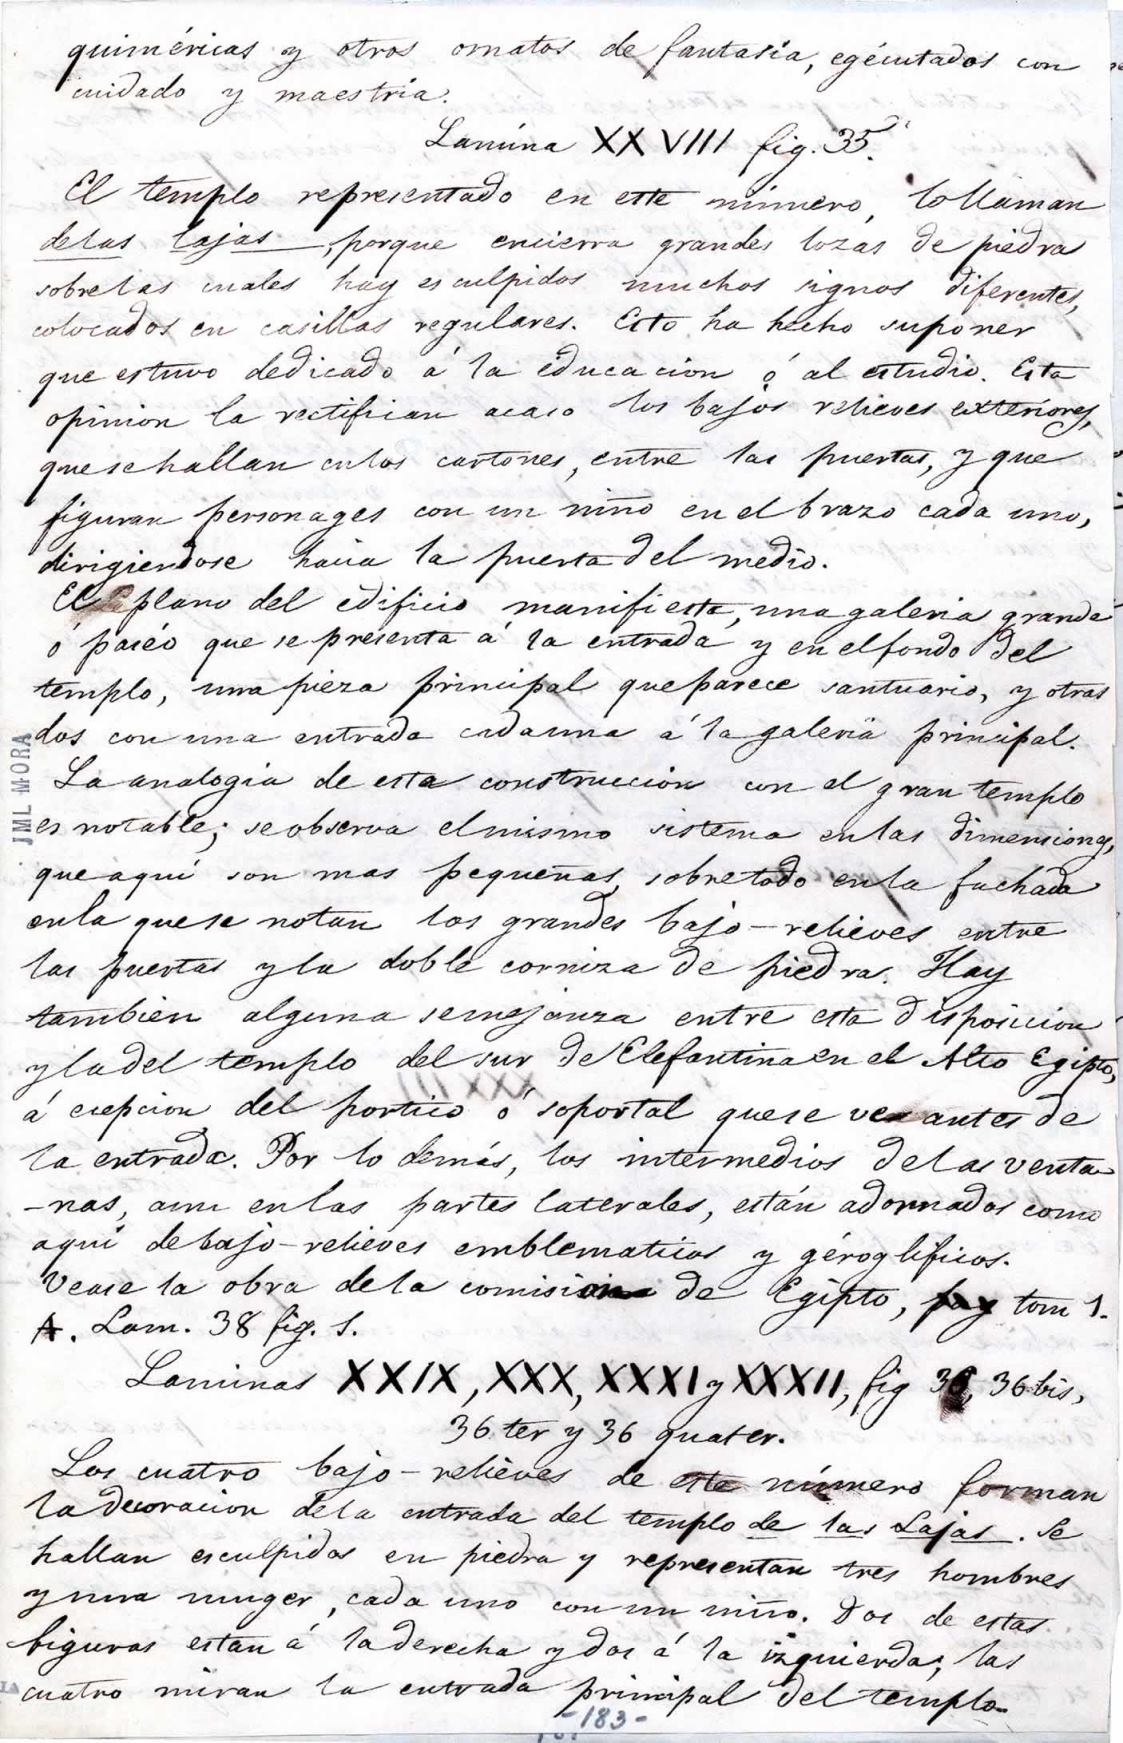 quiméricas y otros ornatos de fantasía, egécutados con
cuidado y maestria.
Lamína XXVIII fig. 35.
El templo representado en este número, lo llaman
delas lajas, porque encierra grandes lozas de piedra
sobrelas cuales hay esculpidos muchos signos diferentes,
colocados en casillas regulares. Esto ha hecho suponer
que estuvo dedicado á la educacion ó al estudio. Esta
opinion la rectifican acaso los bajos relieves exteriores,
que se hallan en los cartones, entre las puertas, y que
figuran personages con un niño en el brazo cada uno,
dirigiendose hacia la puerta del medio.
El plano del edificio manifiesta, una galeria grande
ó paséo que se presenta á la entrada y en el fondo del
templo, una pieza principal que parece santuario, y otras
dos con una entrada cada una á la galeria principal.
La analogia de esta construccion con el gran templo
es notable; se observa el mismo sistema en las dimensiones,
que aquí son mas pequeñas, sobretodo en la fachada
en la que se notan los grandes bajo-relieves entre
las puertas y la doble corniza de piedra. Hay
tambien alguna semejanza entre esta disposicion
y la del templo del sur de Elefantina en el Alto Egipto,
á ecepcion del portico ó soportal que se ve antes de
la entrada. Por lo demás, los intermedios de las venta
-nas, aun en las partes laterales, están adornados como
aquí de bajo-relieves emblematicos y géroglificos.
Vease la obra de la comision de Egipto, tom 1.
A. Lam. 38 fig. 1.
Laminas XXIX, XXX, XXXI y XXXII, fig 36, 36 bis,
36 ter y 36 quater.
Los cuatro bajo-relieves de este número forman
la decoracion dela entrada del templo de las Lajas. Se
hallan esculpidos en piedra y representan tres hombres
y una muger, cada uno con un niño. Dos de estas
figuras estan á la derecha y dos á la izquierda; las
cuatro miran la entrada principal del templo
-183-
JML MORA